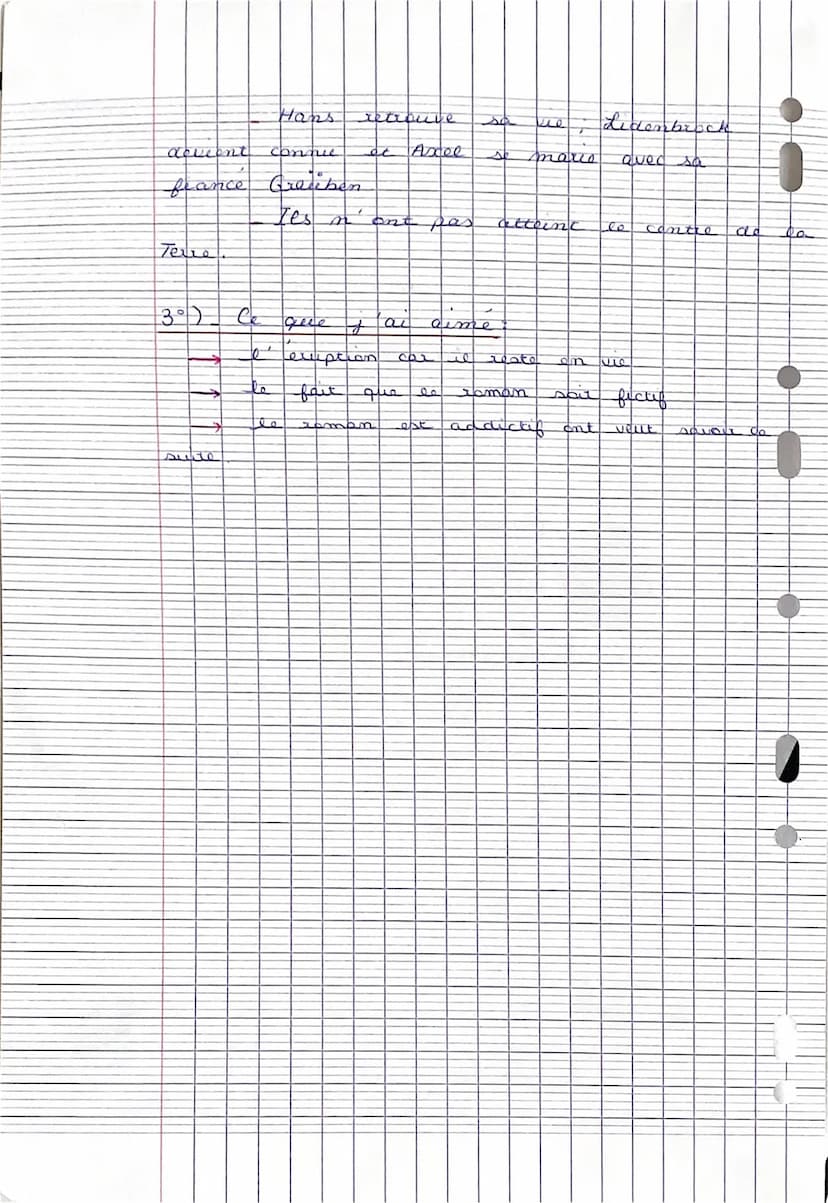 - Hans retrouve sa vie ; Lidenbrock
devient connu et Axel se marie avec sa
fiancé Graüben
- Ils n'ont pas atteint le centre de la
Terre.
3°)_ Ce que j'ai aimé :
→ l'éruption car il reste en vie
→ le fait que le roman soit fictif
→ le roman est addictif ont veut savoir la
suite.